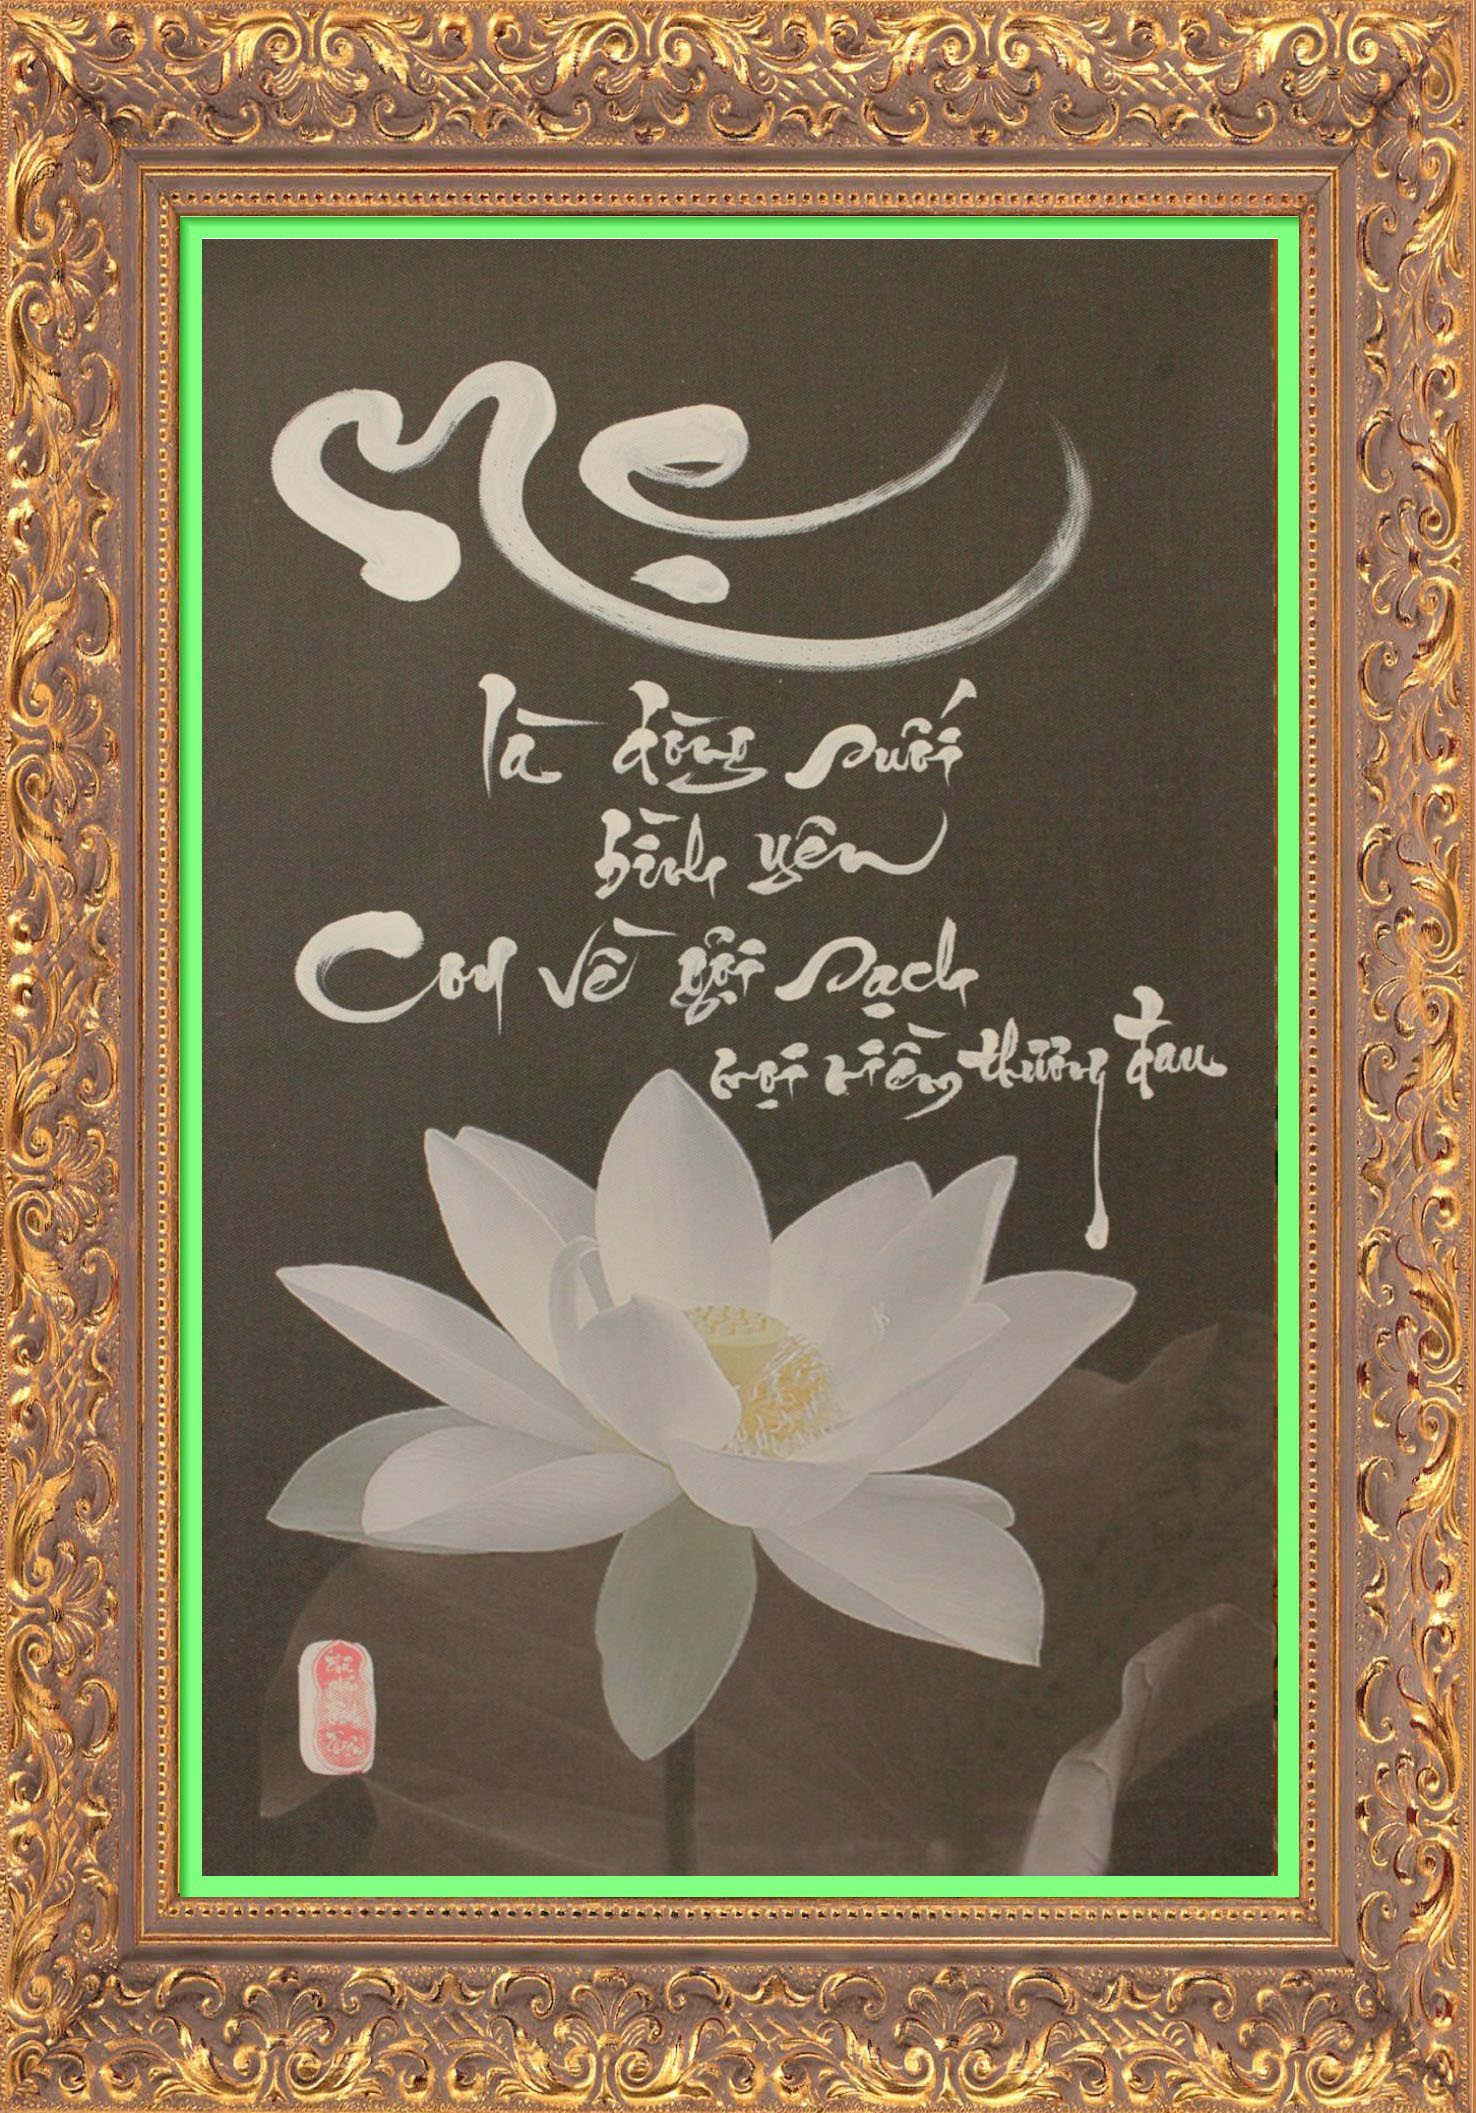 Mẹ
là dòng suối
bình yên
Con về gội sạch
mọi niềm thương đau